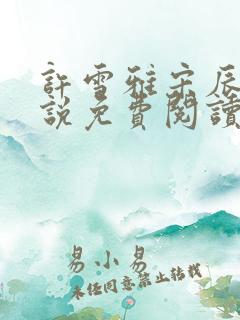 許雪雅宋辰
說免費閱讀
易小易
未任同意禁止转载